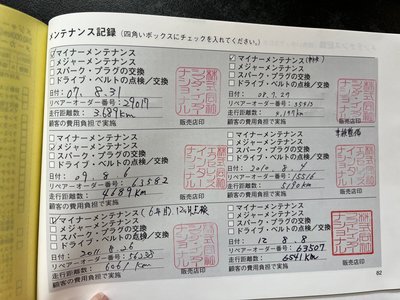 メンテナンス記録(四角いボックスにチェックを入れてください。)
マイナーメンテナンス
メジャーメンテナンス
スパーク・プラグの交換
ドライブ・ベルトの点検/交換
日付: 07. 8. 31
リペアーオーダー番号: 29017
走行距離数: 3,689km
顧客の費用負担で実施
販売店印
マイナーメンテナンス
メジャーメンテナンス
スパーク・プラグの交換
ドライブ・ベルトの点検/交換
日付: 08. 7. 29
リペアーオーダー番号:
走行距離数:
顧客の費用負担で実施
販売店印
マイナーメンテナンス
メジャーメンテナンス
スパーク・プラグの交換
ドライブ・ベルトの点検/交換
日付: 09. 8. 6
リペアーオーダー番号: 63582
走行距離数: 4689km
顧客の費用負担で実施
販売店印
マイナーメンテナンス
メジャーメンテナンス
スパーク・プラグの交換
ドライブ・ベルトの点検/交換
日付: 2010. 8. 4
リペアーオーダー番号: 15516
走行距離数: 5130km
顧客の費用負担で実施
販売店印
マイナーメンテナンス
メジャーメンテナンス
スパーク・プラグの交換
ドライブ・ベルトの点検/交換
日付: 2011. 8. 26
リペアーオーダー番号: 56233
走行距離数: 6061km
顧客の費用負担で実施
販売店印
マイナーメンテナンス
メジャーメンテナンス
スパーク・プラグの交換
ドライブ・ベルトの点検/交換
日付: 12. 8. 8
リペアーオーダー番号: 63507
走行距離数: 6541km
顧客の費用負担で実施
販売店印
82